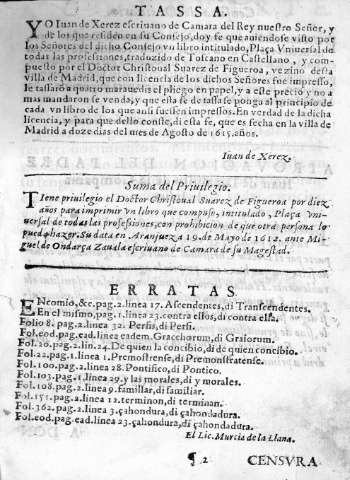 TASSA.
YO Iuan de Xerez escriuano de Camara del Rey nuestro Señor, y
de los que residen en su Consejo, doy fe que auiendose visto por
los Señores del dicho Consejo vn libro intitulado, Plaça Vniuersal de
todas las professiones, traduzido de Toscano en Castellano, y com-
puesto por el Doctor Christoual Suarez de Figueroa, vezino desta
villa de Madrid, que con licencia de los dichos Señores fue impresso,
le tassarō a quatro marauedis el pliego en papel, y a este precio y no a
mas mandaron se venda, y que esta fe de tassa se ponga al principio de
cada vn libro de los que ansi fuessen impressos. En verdad de la dicha
licencia, y para que dello conste, di esta fe, que es fecha en la villa de
Madrid a doze dias del mes de Agosto de 1615. años.
Iuan de Xerez.
Suma del Priuilegio.
TIene priuilegio el Doctor Christoual Suarez de Figueroa por diez
años para imprimir vn libro que compuso, intitulado, Plaça Vni-
uersal de todas las professiones, con prohibicion de que otra persona lo
pueda hazer. Su data en Aranjuez a 19. de Mayo de 1612. ante Mi-
guel de Ondarça Zauala escriuano de Camara de su Magestad.
ERRATAS
ENcomio, &c. pag. 2. linea 17. Ascendentes, di Transcendentes.
En el mismo, pag. 1. linea 23. contra ellos, di contra ella.
Folio 8. pag. 2. linea 32. Persis, di Persi.
Fol. eod. pag. ead. linea eadem. Gracchorum, di Graiorum.
Fol. 20. pag. 2. lin. 24. De quien la concibio, di de quien concibio.
Fol. 22. pag. 1. linea 1. Premostrense, di Premonstratense.
Fol. 100. pag. 2. linea 28. Pontifico, di Pontico.
Fol. 103. pag. 1. linea 29. y las morales, di y morales.
Fol. 108. pag. 2. linea 9. famillar, di familiar.
Fol. 151. pag. 2. linea 12. terminon, di terminan.
Fol. 362. pag. 2. linea 3. çahondura, di çahondadura.
Fol. eod. pag. ead. linea 23. çahondura, di çahondadura.
El Lic. Murcia de la Llana.
¶ 2 CENSVRA